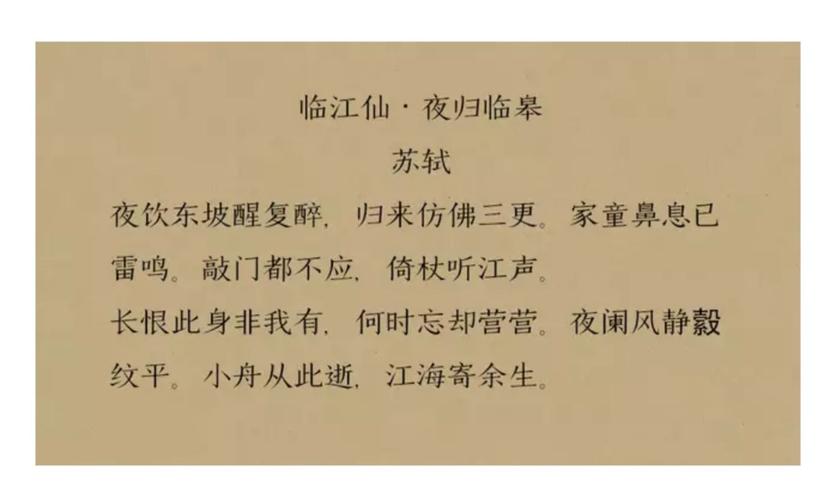 临江仙·夜归临皋
苏轼
夜饮东坡醒复醉,归来仿佛三更。家童鼻息已
雷鸣。敲门都不应,倚杖听江声。
长恨此身非我有,何时忘却营营。夜阑风静縠
纹平。小舟从此逝,江海寄余生。